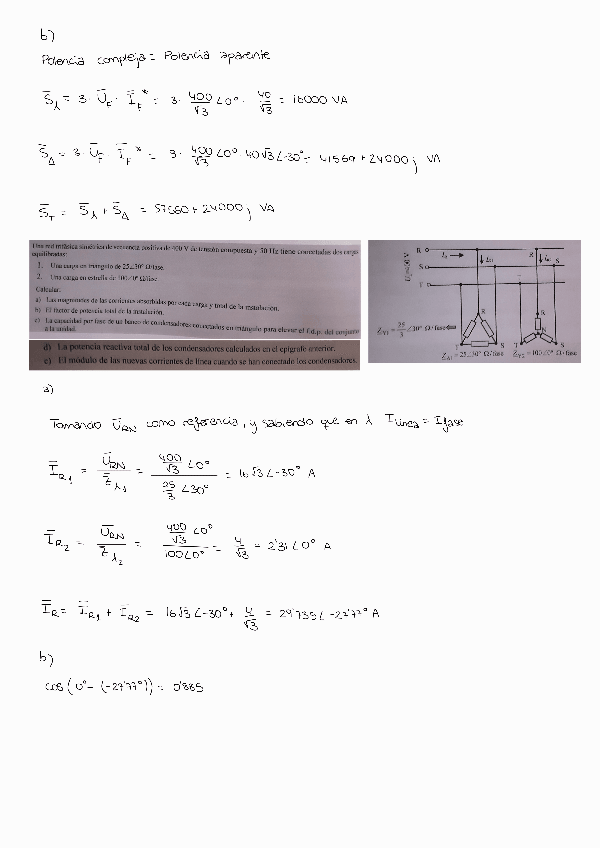 b)
Potencia compleja = Potencia aparente
S̄⅄ = 3 · Ū_F · Ī_F* = 3 · 400/√3 ∠0° · 40/√3 = 16000 VA
S̄_Δ = 3 · Ū_F · Ī_F* = 3 · 400/√3 ∠0° · 40√3 ∠-30° = 41569 + 24000j VA
S̄_T = S̄⅄ + S̄_Δ = 57560 + 24000j VA
Una red trifásica simétrica de secuencia positiva de 400 V de tensión compuesta y 50 Hz tiene conectadas dos cargas
equilibradas:
1. Una carga en triángulo de 25∠30° Ω/fase.
2. Una carga en estrella de 100∠0° Ω/fase.
Calcular:
a) Las magnitudes de las corrientes absorbidas por cada carga y total de la instalación.
b) El factor de potencia total de la instalación.
c) La capacidad por fase de un banco de condensadores conectados en triángulo para elevar el f.d.p. del conjunto
a la unidad.
d) La potencia reactiva total de los condensadores calculados en el epígrafe anterior.
e) El módulo de las nuevas corrientes de línea cuando se han conectado los condensadores.
R
S
T
R
S
R
R
N
T S T S
Z_Y1 = 25/3 ∠30° Ω/fase
Z_Δ1 = 25∠30° Ω/fase Z_Y2 = 100∠0° Ω/fase
a)
Tomando Ū_RN como referencia, y sabiendo que en ⅄ I línea = I fase
Ī_R1 = Ū_RN / Z̄⅄1 = (400/√3 ∠0°) / (25/3 ∠30°) = 16√3 ∠-30° A
Ī_R2 = Ū_RN / Z̄⅄2 = (400/√3 ∠0°) / (100∠0°) = 4/√3 = 2'31 ∠0° A
Ī_R = Ī_R1 + Ī_R2 = 16√3 ∠-30° + 4/√3 = 29'735 ∠-27'72° A
b)
cos (0° - (-27'77°)) = 0'885